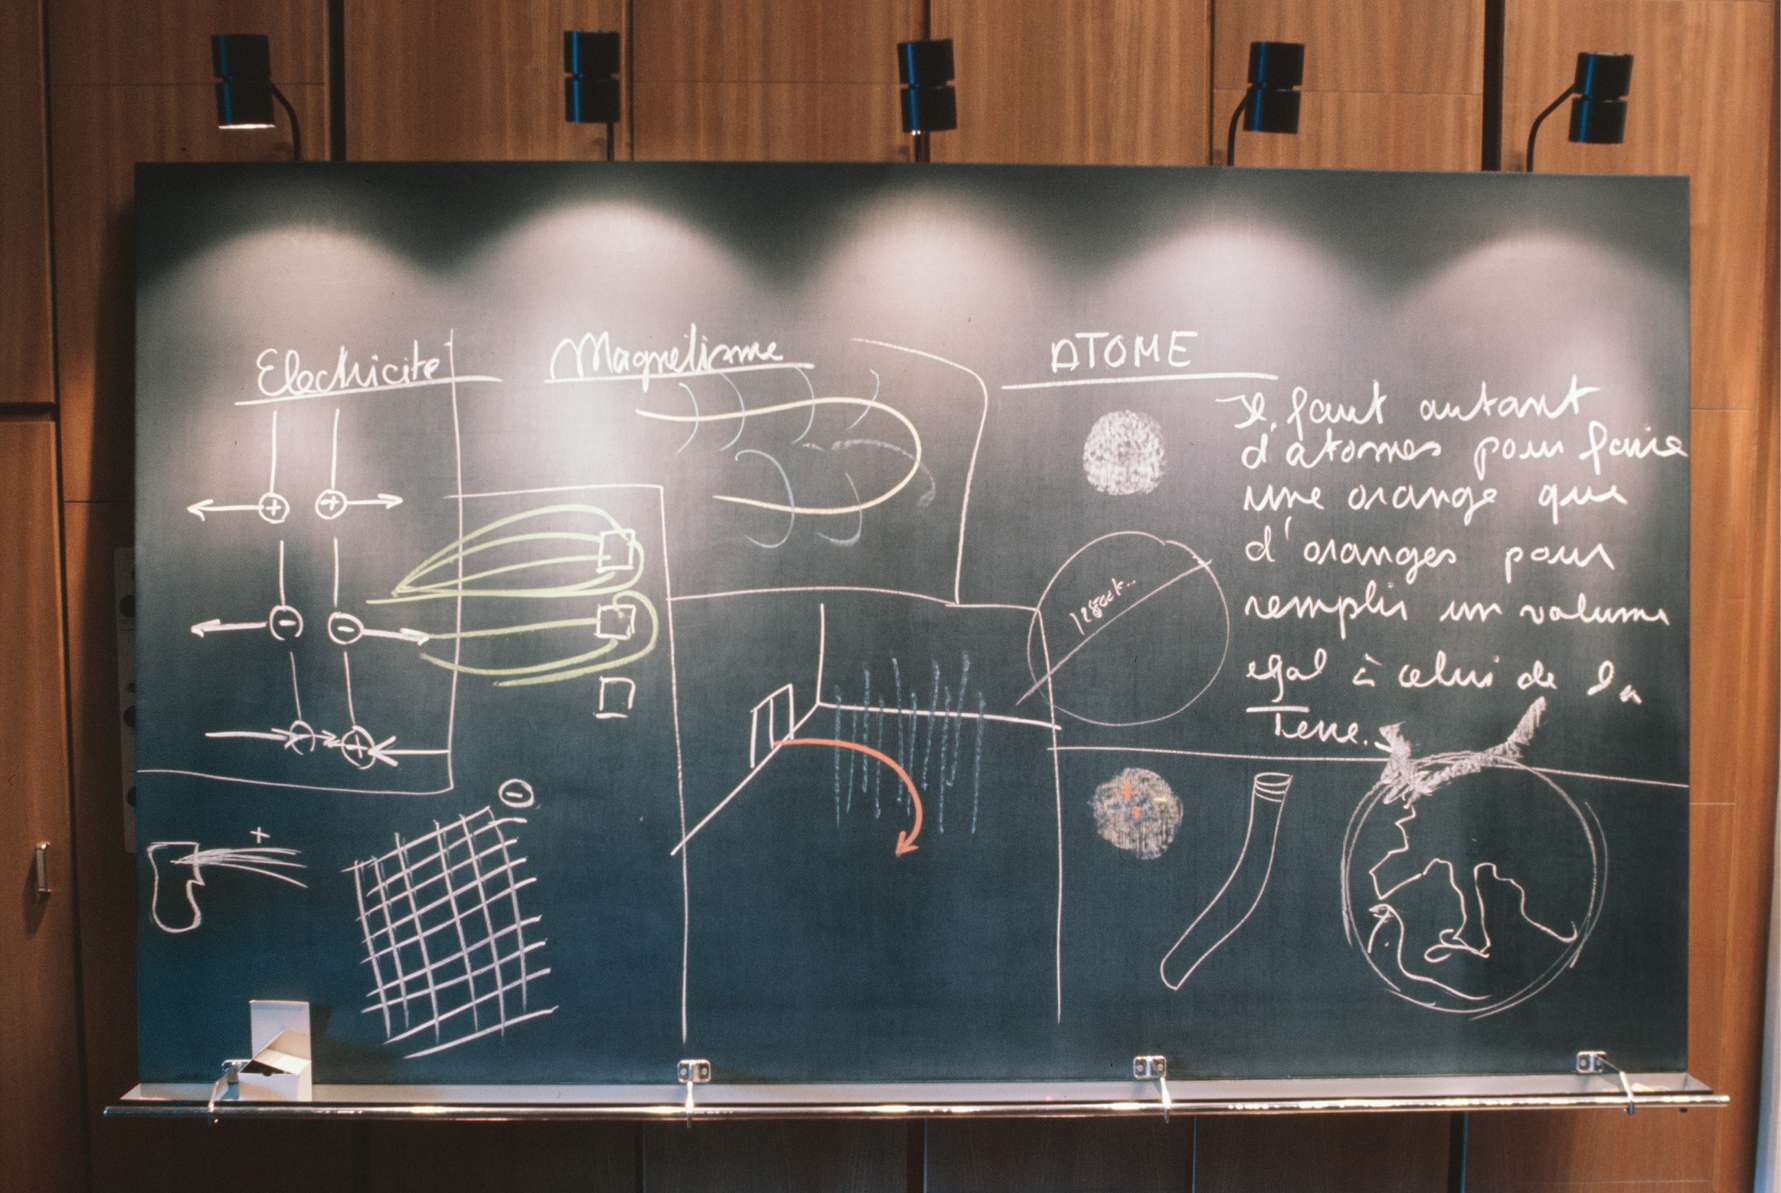 Electricité
Magnétisme
ATOME
Il faut autant
d'atomes pour faire
une orange que
d'oranges pour
remplir un volume
egal à celui de la
Terre.
+
+
-
-
+
-
+